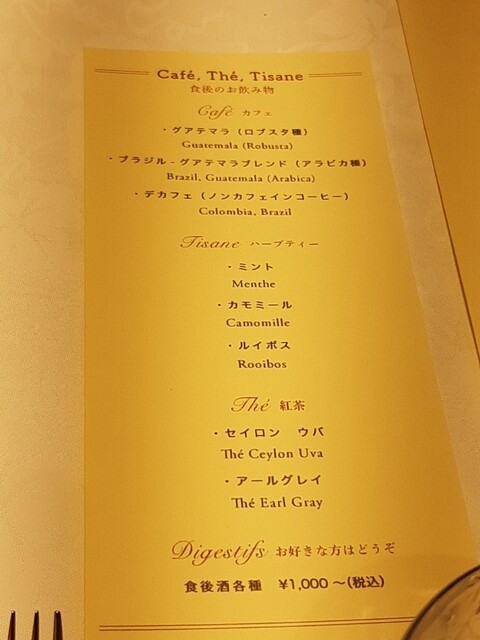 Café, Thé, Tisane
食後のお飲み物
Café カフェ
・グアテマラ（ロブスタ種）
Guatemala (Robusta)
・ブラジル - グアテマラブレンド（アラビカ種）
Brazil, Guatemala (Arabica)
・デカフェ（ノンカフェインコーヒー）
Colombia, Brazil
Tisane ハーブティー
・ミント
Menthe
・カモミール
Camomille
・ルイボス
Rooibos
Thé 紅茶
・セイロン　ウバ
Thé Ceylon Uva
・アールグレイ
Thé Earl Gray
Digestifs お好きな方はどうぞ
食後酒各種　¥1,000 〜(税込)